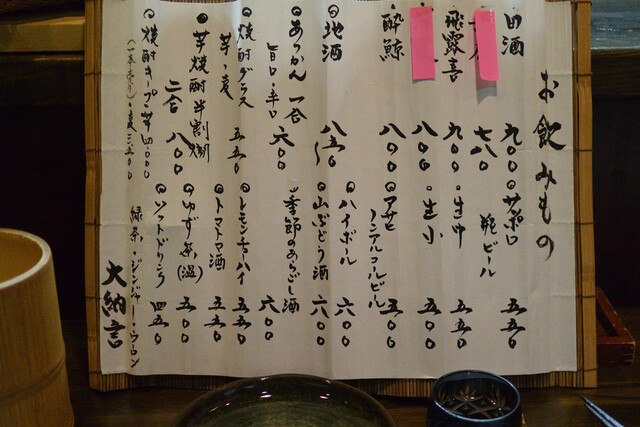 お飲みもの
田酒 九〇〇
七八〇
飛露喜 九〇〇
八〇〇
酔鯨 八〇〇
◎地酒 八五〇〜
◎あつかん 一合 六〇〇
旨口・辛口
◎焼酎グラス 五五〇
芋・麦
◎芋焼酎半割燗
二合 八〇〇
◎焼酎キープ・芋四、〇〇〇
◎サッポロ
瓶ビール 五五〇
◎生中 五五〇
◎生小 五〇〇
◎アサヒ
ノンアルコールビール 五〇〇
◎ハイボール 六〇〇
◎山ぶどう酒 六〇〇
◎季節のあらごし酒 六〇〇
◎レモンチューハイ 五五〇
◎トマトマ酒 五五〇
◎ゆず茶(温) 五〇〇
◎ソフトドリンク 四五〇
緑茶・ジンジャー・ウーロン
大納言